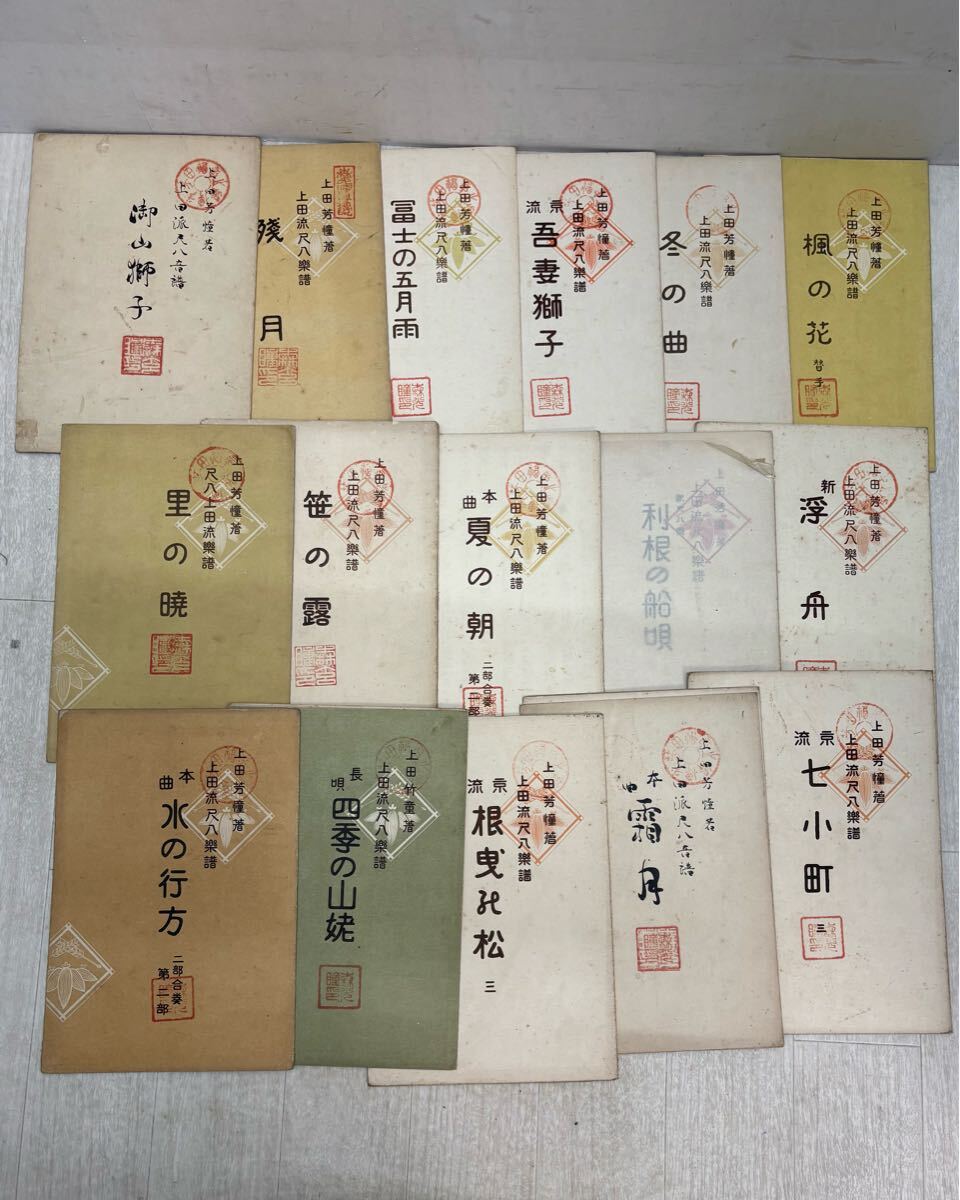 上田芳憧著
上田派尺八音譜
御山獅子
上田芳憧著
上田流尺八樂譜
殘月
上田芳憧著
上田流尺八樂譜
冨士の五月雨
上田芳憧著
上田流尺八樂譜
京流
吾妻獅子
上田芳憧著
上田流尺八樂譜
冬の曲
上田芳憧著
上田流尺八樂譜
楓の花
替手
上田芳憧著
尺八上田流樂譜
里の暁
上田芳憧著
上田流尺八樂譜
笹の露
上田芳憧著
上田流尺八樂譜
本曲
夏の朝
二部合奏
第一部
上田芳憧著
上田流尺八樂譜
利根の船唄
上田芳憧著
上田流尺八樂譜
新
浮舟
上田芳憧著
上田流尺八樂譜
本曲
水の行方
二部合奏
第二部
上田竹童著
上田流尺八樂譜
長唄
四季の山姥
上田芳憧著
上田流尺八樂譜
京流
根曳の松
三
上田芳憧著
上田派尺八音譜
本曲
霜月
上田芳憧著
上田流尺八樂譜
京流
七小町
三